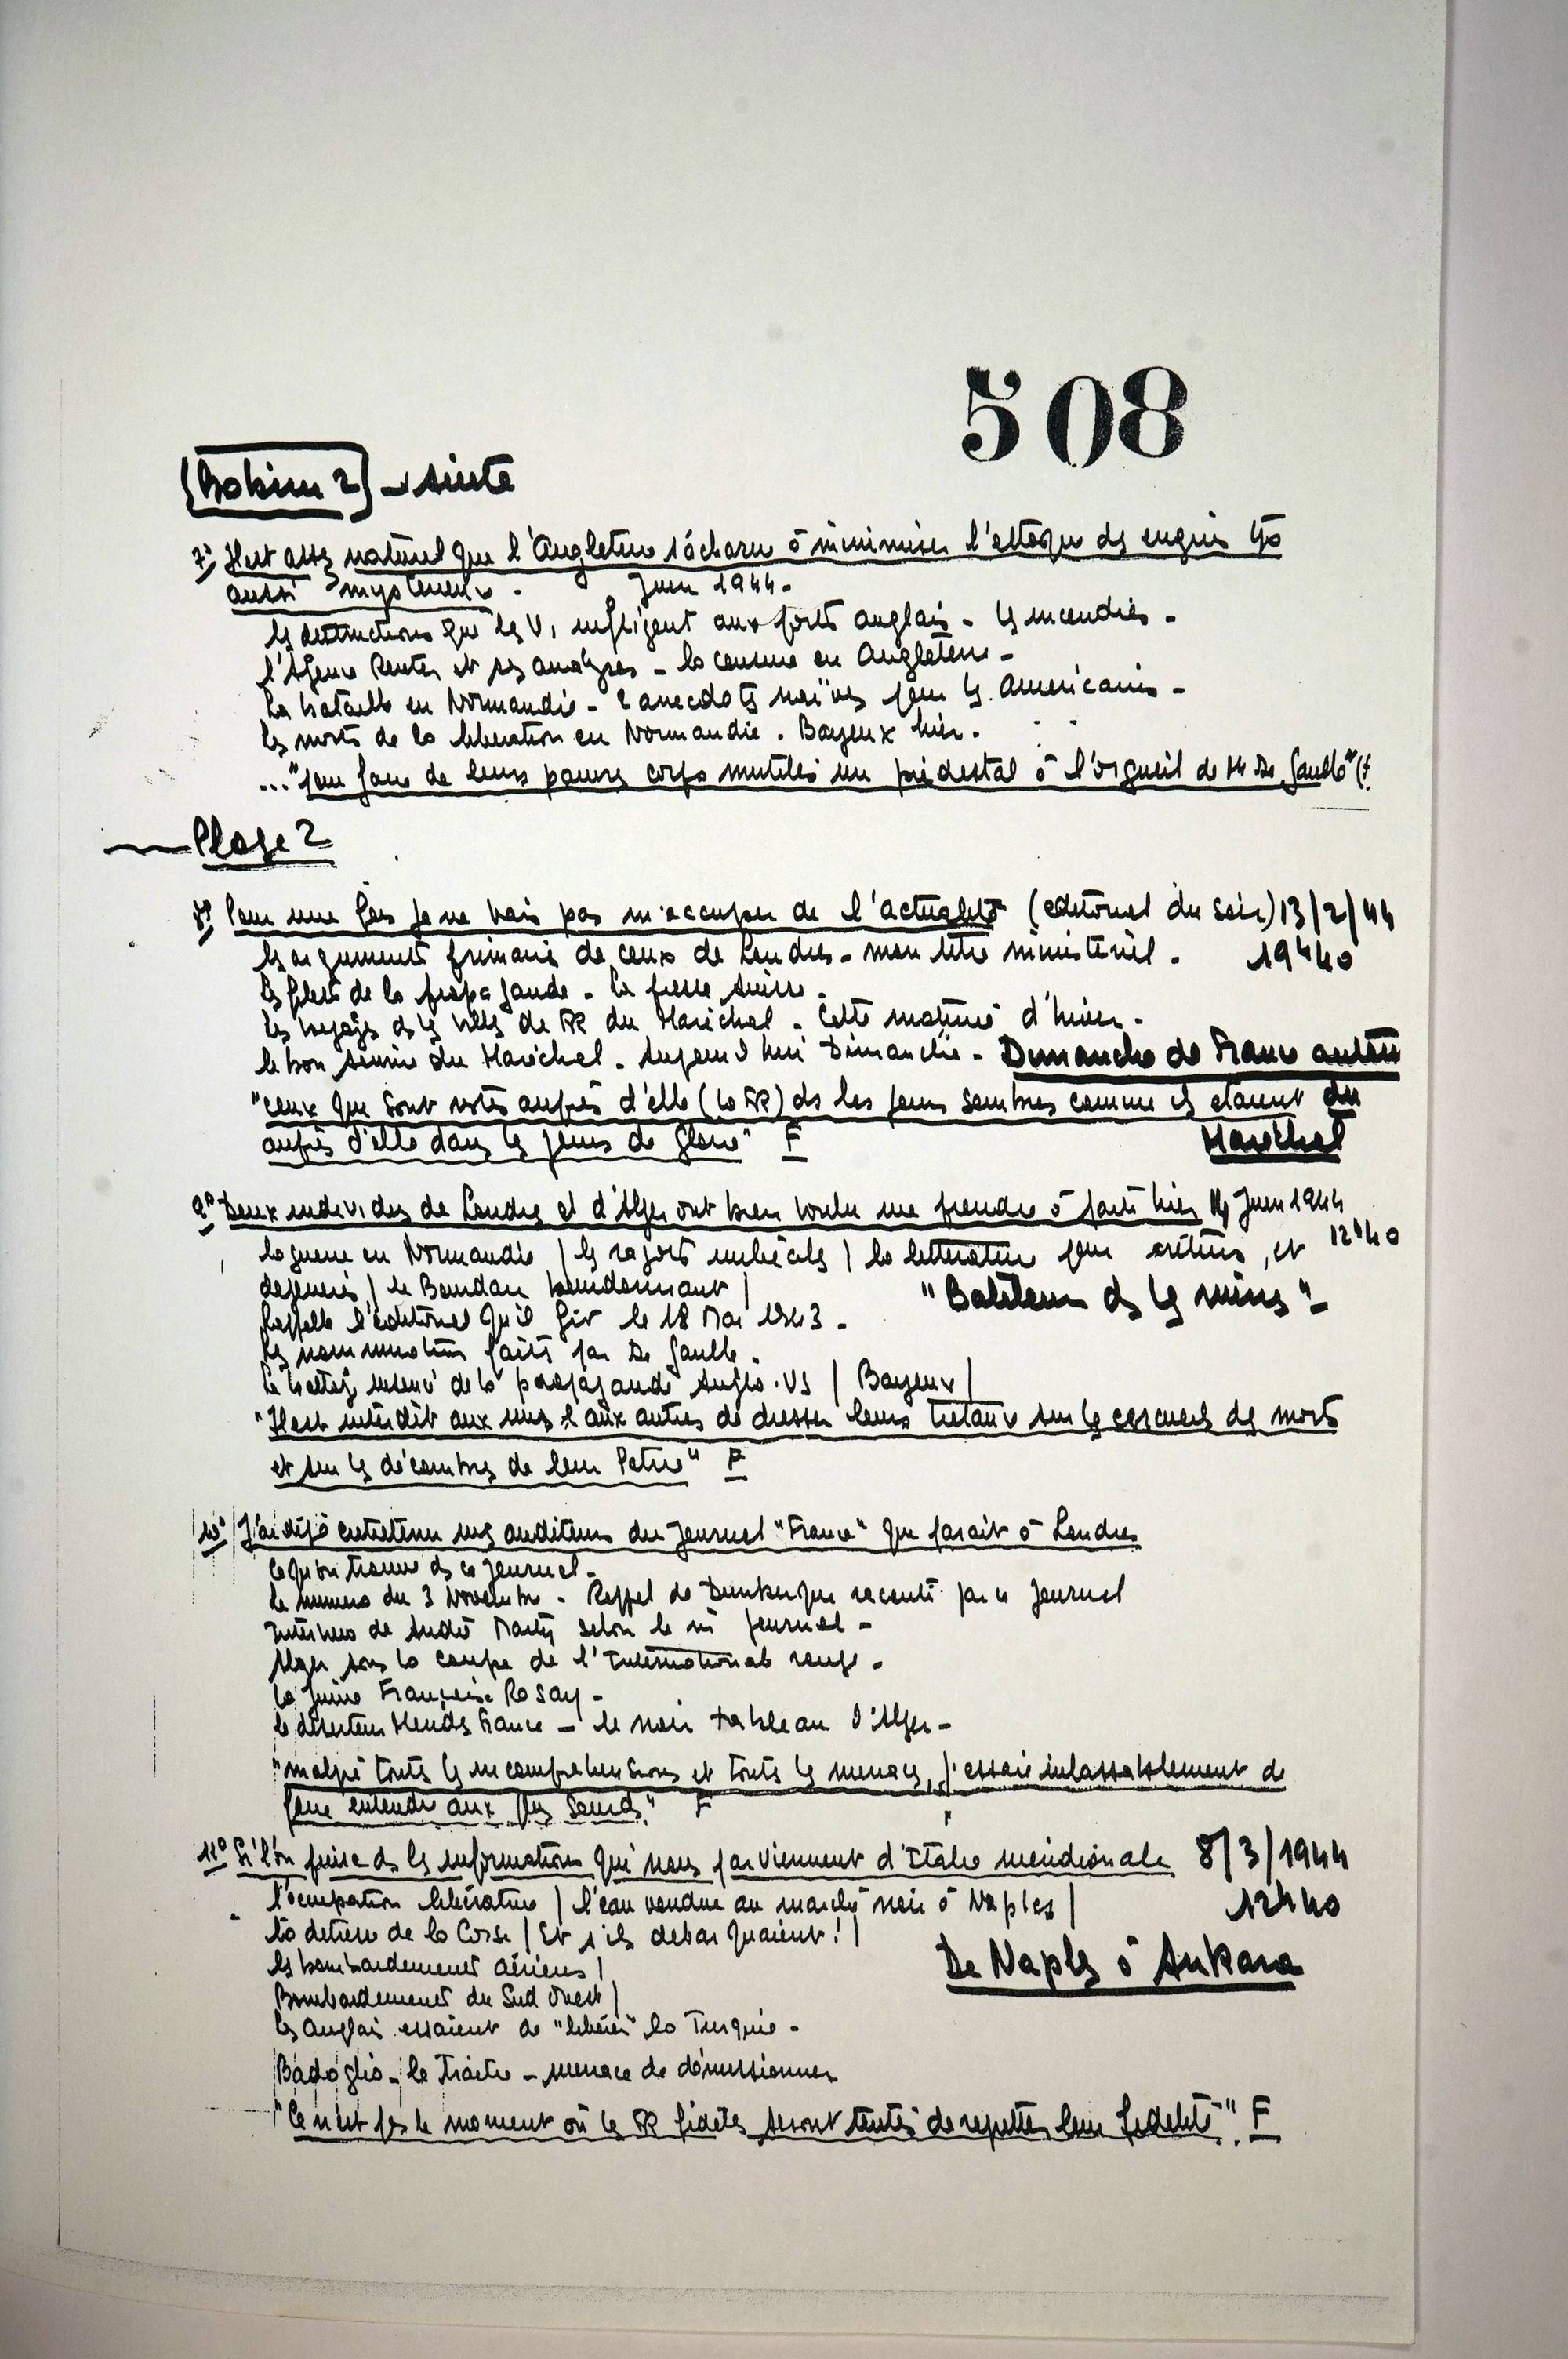 508
(Bobine 2) - suite
7°) Il est assez naturel que l'Angleterre s'acharne à minimiser l'attaque des engins
aussi mysterieux. Juin 1944.
les destructions que les V1 infligent aux ports anglais - les incendies -
l'Agence Reuter et ses analyses - la censure en Angleterre -
La bataille en Normandie - 2 anecdotes naïves pour les américains -
les morts de la libération en Normandie. Bayeux hier.
..."pour faire de leurs pauvres corps mutilés un piédestal à l'orgueil de Mr De Gaulle" (F
Plage 2
8°) Pour une fois je ne vais pas m'occuper de l'actualité (editorial du soir) 13/2/44
les arguments primaires de ceux de Londres - mon titre ministériel. 19h40
les filets de la propagande - la presse suisse.
les voyages ds les villes de FR du Maréchal - Cette matinée d'hiver.
le bon sourire du Maréchal - Aujourd'hui Dimanche - Dimanche de France autour
"ceux qui sont restés auprès d'elle (la FR) ds les jours sombres comme ils étaient du
auprès d'elle dans les jours de gloire" F Maréchal
9°) Deux individus de Londres et d'Alger ont bien voulu me prendre à partie hier 14 Juin 1944
la guerre en Normandie / les ragots imbéciles / la littérature pour crétins, et 12h40
/ le Bourdan bourdonnant / "Bateleurs ds les ruines"-
Rappelle l'éditorial qu'il fit le 18 Mai 1943.
les nominations faites par De Gaulle.
le battage insensé de la propagande Anglo-US / Bayeux /
"Il est interdit aux uns & aux autres de dresser leurs tréteaux sur les cercueils des morts
et sur les décombres de leur Patrie" F
10° J'ai déjà entretenu mes auditeurs du Journal "France" qui parait à Londres
ce qu'on trouve ds ce Journal.
le numero du 3 Novembre - Rappel de Dunkerque raconté par ce Journal
Interview de André Marty selon le m journal -
Alger sous la coupe de l'Internationale rouge.
la juive Françoise Rosay -
le déserteur Mendès France - le noir tableau d'Alger -
"malgré toutes les incomprehensions et toutes les menaces, j'essaie inlassablement de
faire entendre aux plus sourds" F
11° Si l'on puise ds les informations qui nous parviennent d'Italie méridionale 8/3/1944
l'occupation libératrice / l'eau vendue au marché noir à Naples / 12h40
la détresse de la Corse / Et s'ils debarquaient! / De Naples à Ankara
les bombardements aériens /
Bombardements du Sud Ouest /
les Anglais essaient de "libérer" la Turquie -
Badoglio - le Traitre - menace de démissionner
"Ce n'est pas le moment où les FR fidèles seront tentés de regretter leur fidélité". F